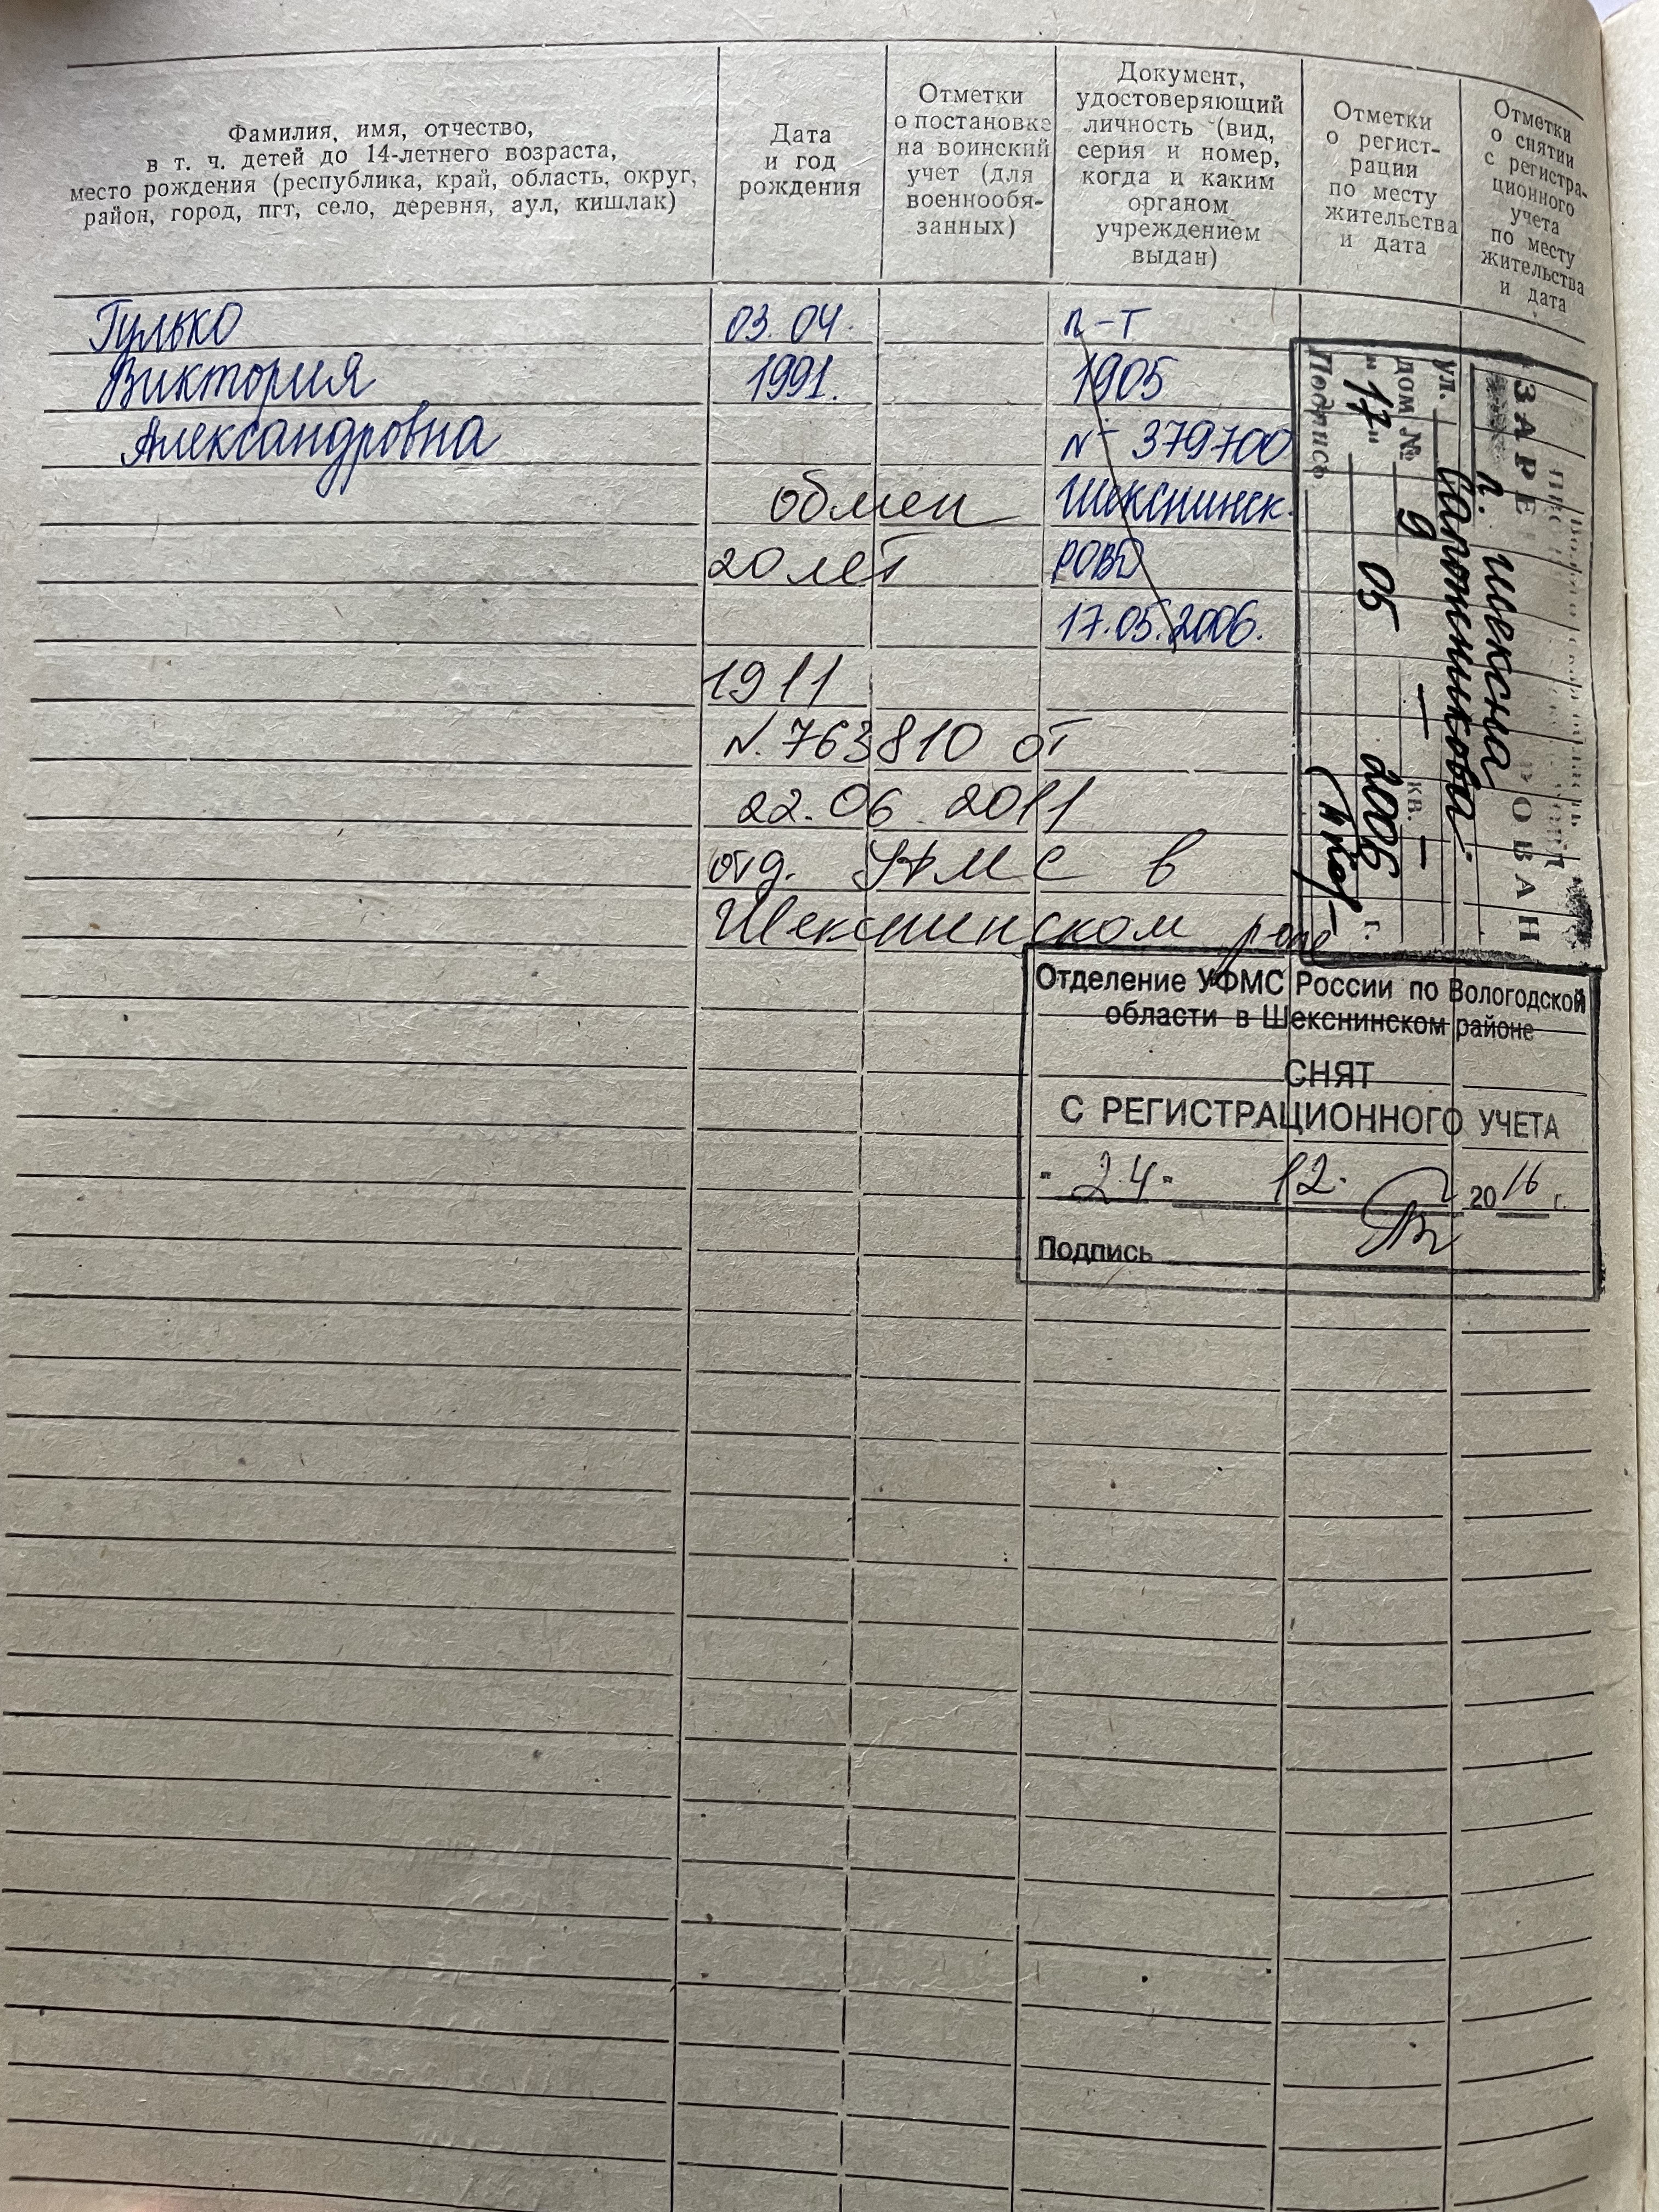 Фамилия, имя, отчество,
в т. ч. детей до 14-летнего возраста,
место рождения (республика, край, область, округ,
район, город, пгт, село, деревня, аул, кишлак)
Дата
и год
рождения
Отметки
о постановке
на воинский
учет (для
военнообя-
занных)
Документ,
удостоверяющий
личность (вид,
серия и номер,
когда и каким
органом
учреждением
выдан)
Отметки
о регист-
рации
по месту
жительства
и дата
Отметки
о снятии
с регистра-
ционного
учета
по месту
жительства
и дата
Гулько
Виктория
Александровна
03.04.
1991.
п-т
1905
№ 379700
Шекснинск.
РОВД
17.05.2006.
обмен
20 лет
1911
N. 763810 от
22.06.2011
отд. УФМС в
Шекснинском р-оне
ЗАРЕ РОВАН
п. Шексна
ул. Сапожникова.
дом № 9 — кв. —
"17" 05 2006 г.
Подпись
Отделение УФМС России по Вологодской
области в Шекснинском районе
СНЯТ
С РЕГИСТРАЦИОННОГО УЧЕТА
"24" 12. 2016 г.
Подпись